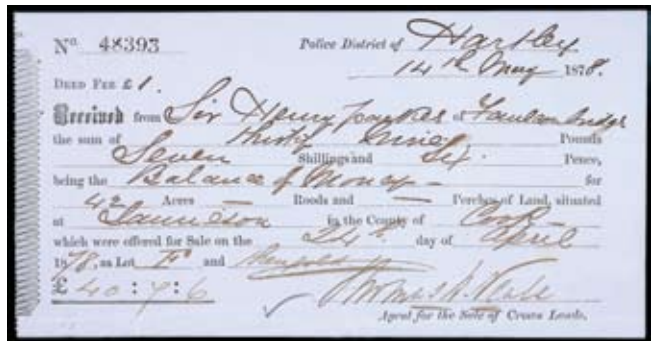 No. 48393 Police District of Hartley
14th May 1878.
DEED FEE £1.
Received from Sir Henry Parkes of Faulconbridge
the sum of thirty nine Pounds
Seven Shillings and Six Pence,
being the Balance of Money — for
42 Acres — Roods and — Perches of Land, situated
at in the County of Cook
which were offered for Sale on the 24th day of April
1878, as Lot and
£ 40 : 7 : 6
Agent for the Sale of Crown Lands.